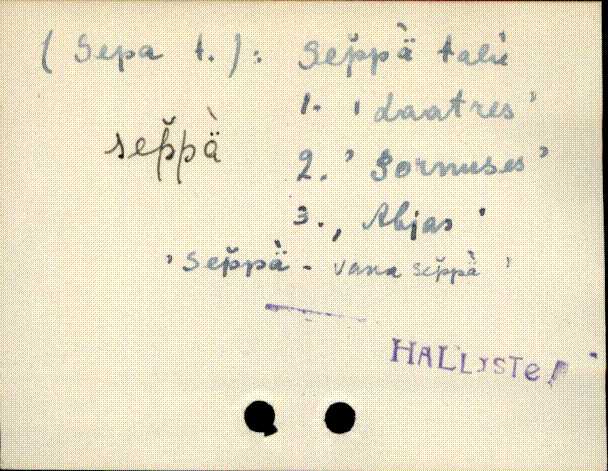 ( Sepa t. ) : Sep̆pä̀ talù
1. ' Laatres '
sep̆pä̀
2. ' Sornuses '
3. , Abjas '
' Sep̆pä̀ - vana sep̆pä̀ '
HALLISTE